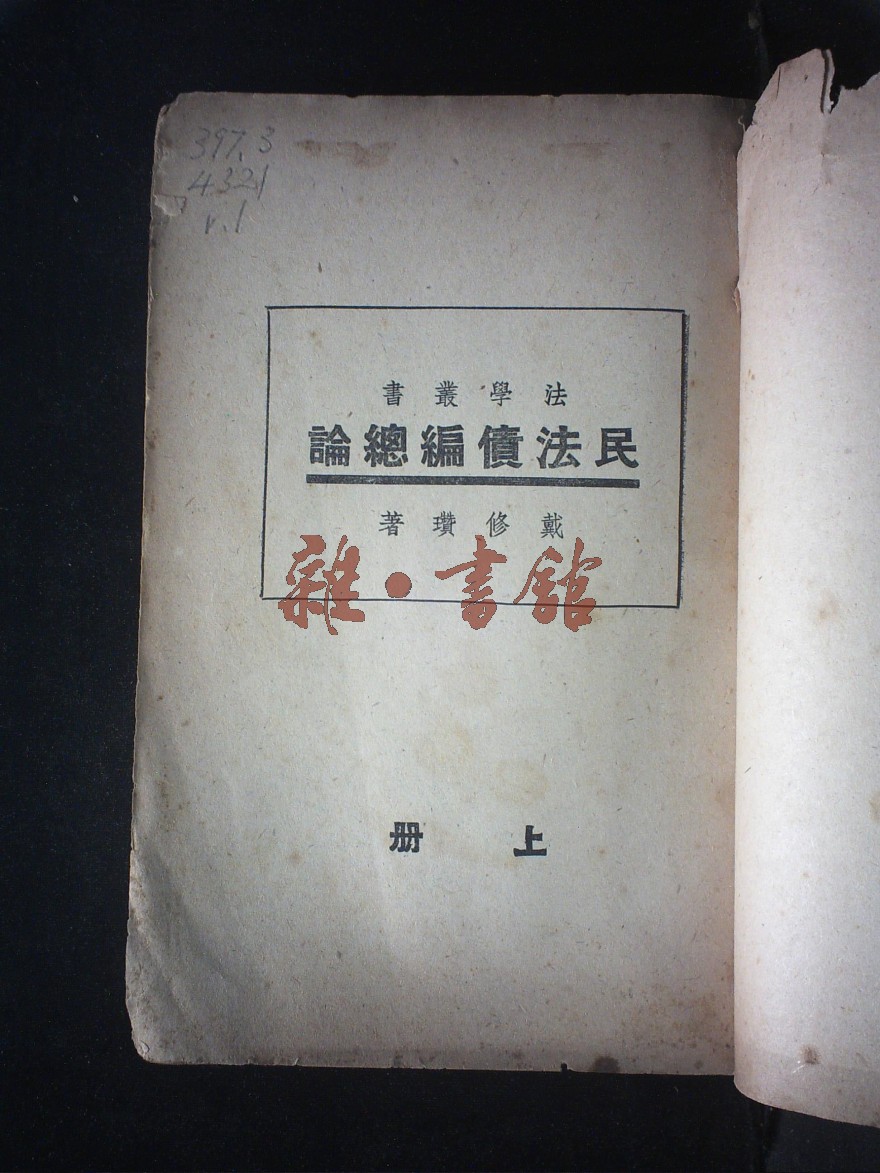 397.3
4321
v.1
法學叢書
民法債編總論
戴修瓚著
雜·書館
上册